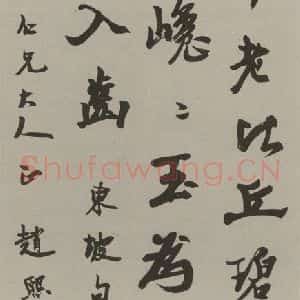 老比丘碧
巉〻玉為
入齒 東坡句
仁兄大人正 趙熙
Shufawang.CN